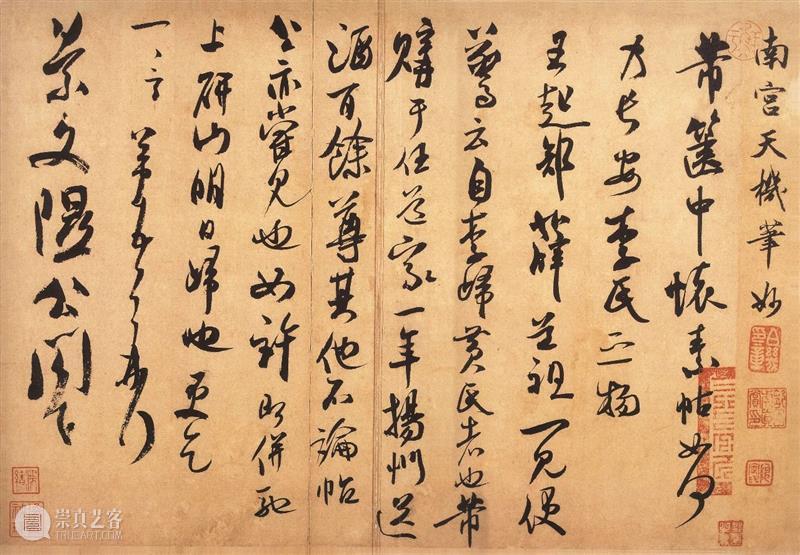 南宮天機筆妙
芾篋中懷素帖如何
乃長安李氏之物
王起部薛道祖一見便
驚云自李歸黃氏者也芾
購于任道家一年揚州送
酒百餘尊其他不論帖
公亦嘗見也如許即併馳
上研山明日歸也更乞
一言芾頓首再拜
景文隰公閤下
崇真艺客